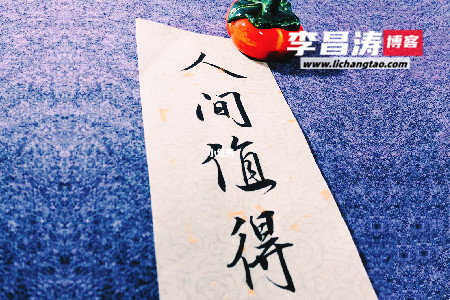 李昌涛博客
www.lichangtao.com
人间值得